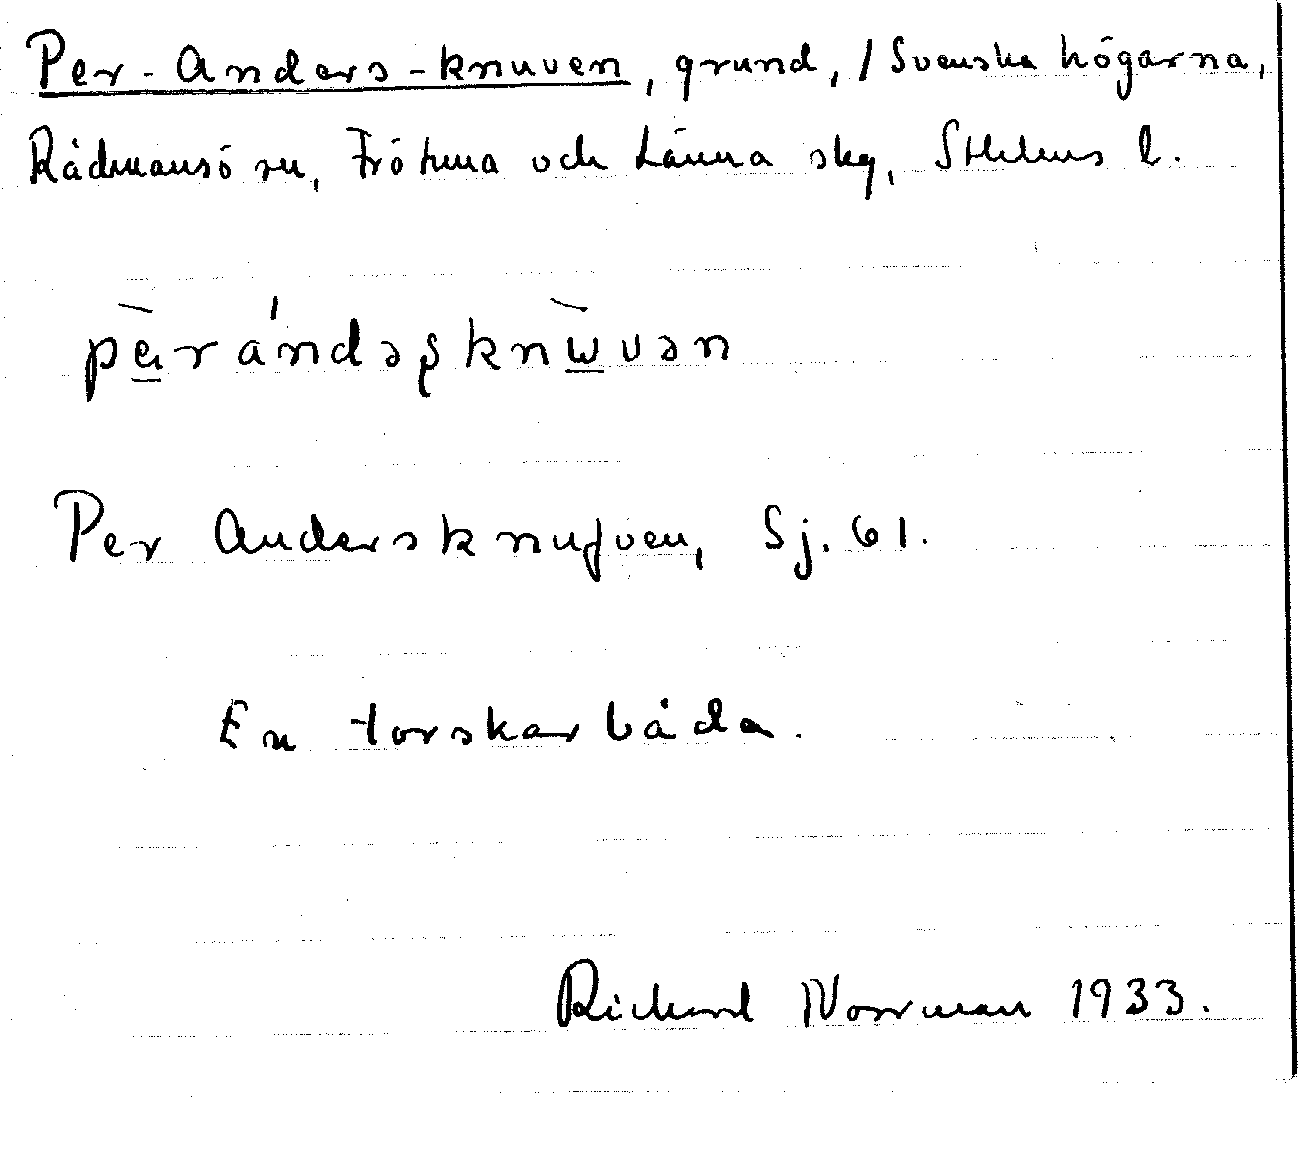 Per-Anders-knuven, grund, / Svenska högarna,
Rådmansö sn, Frötuna och Länna skg, Sthlms l.
pèrándəʂknùvən
Per Andersknufven, Sj. 61.
En torskarbåda.
Richard Norrman 1933.